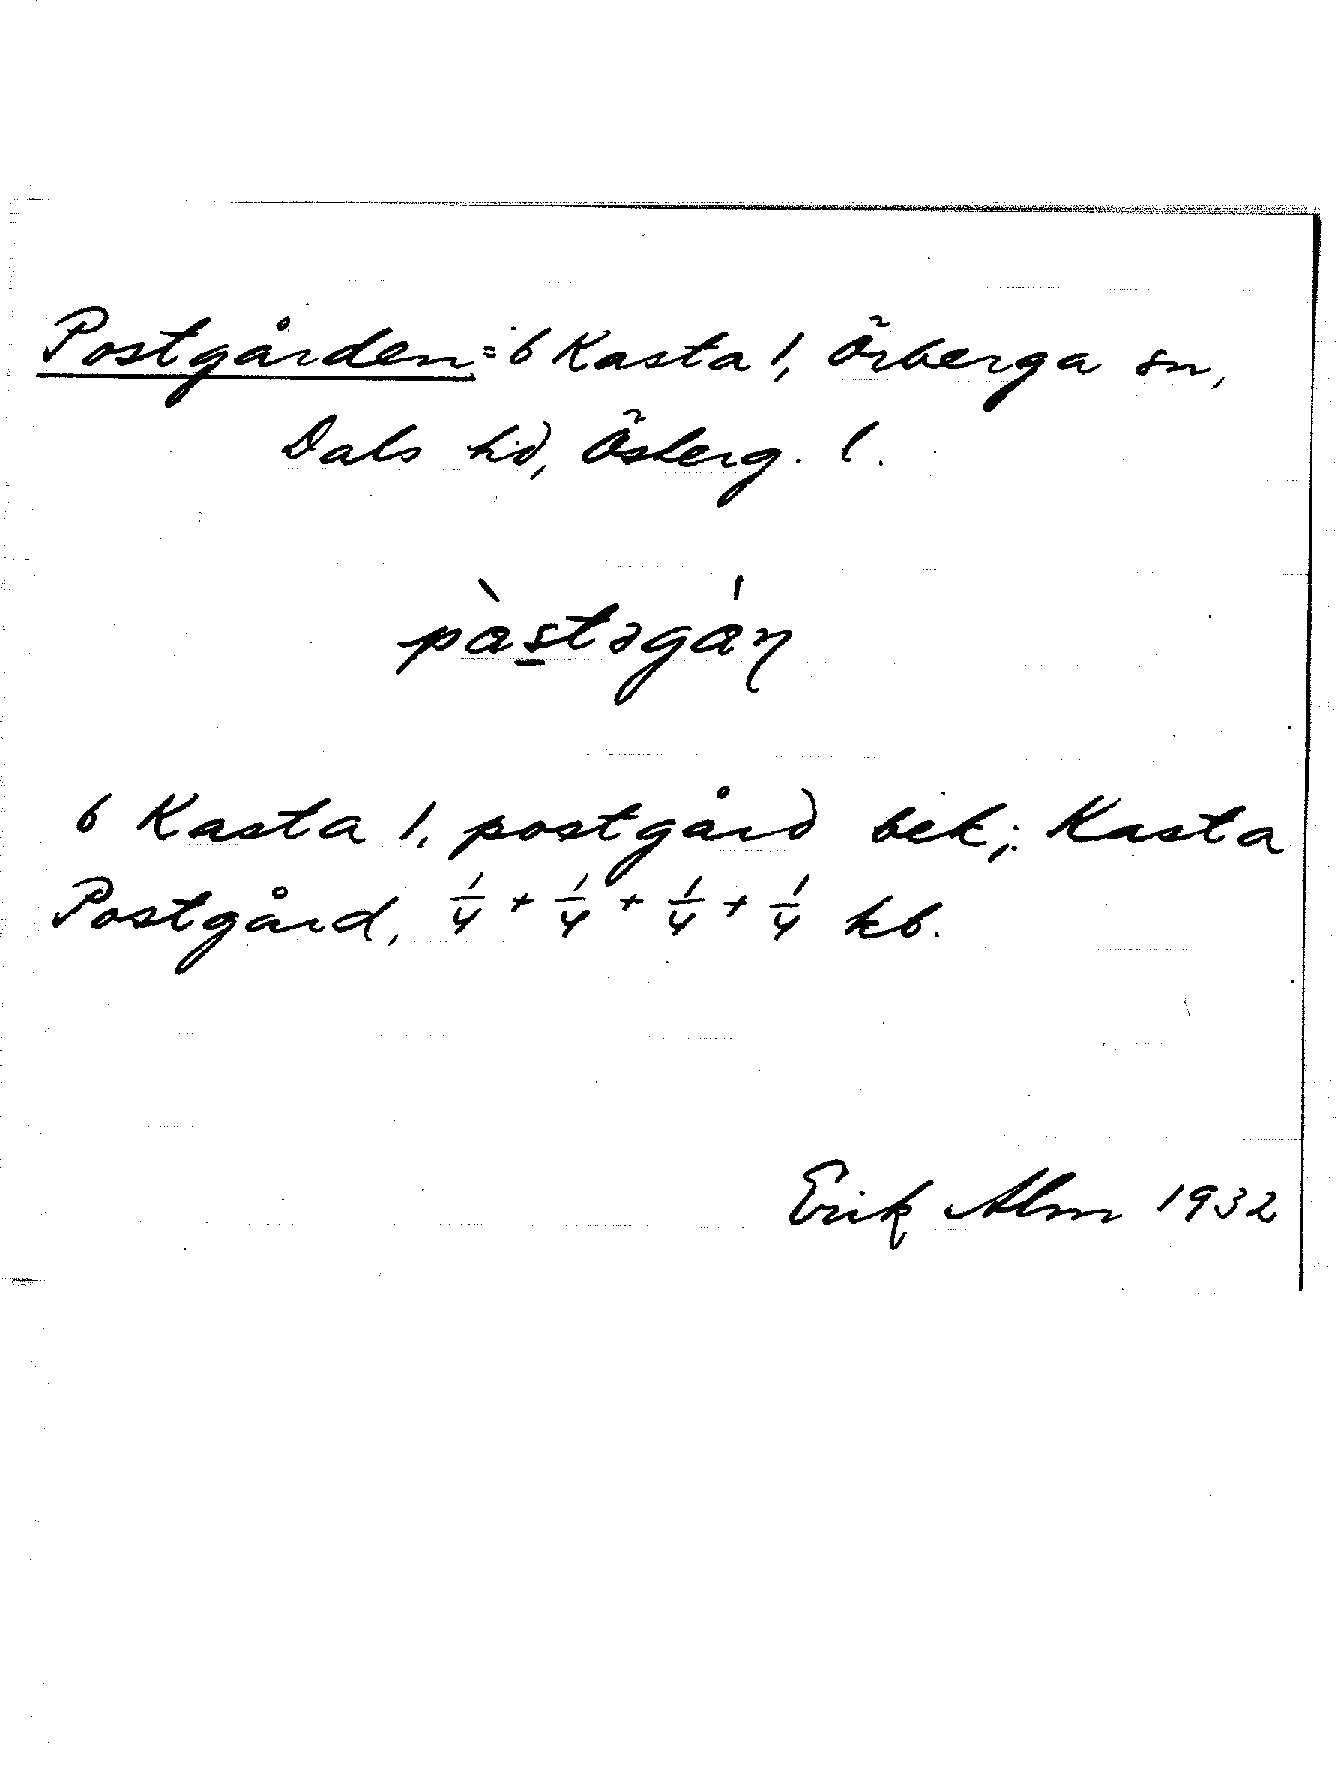 Postgården = 6 Kasta 1, Örberga sn,
Dals hd, Österg. l.
pàstəgán
6 Kasta 1, postgård bek; Kasta
Postgård, 1/4 + 1/4 + 1/4 + 1/4 kb.
Erik Alm 1932